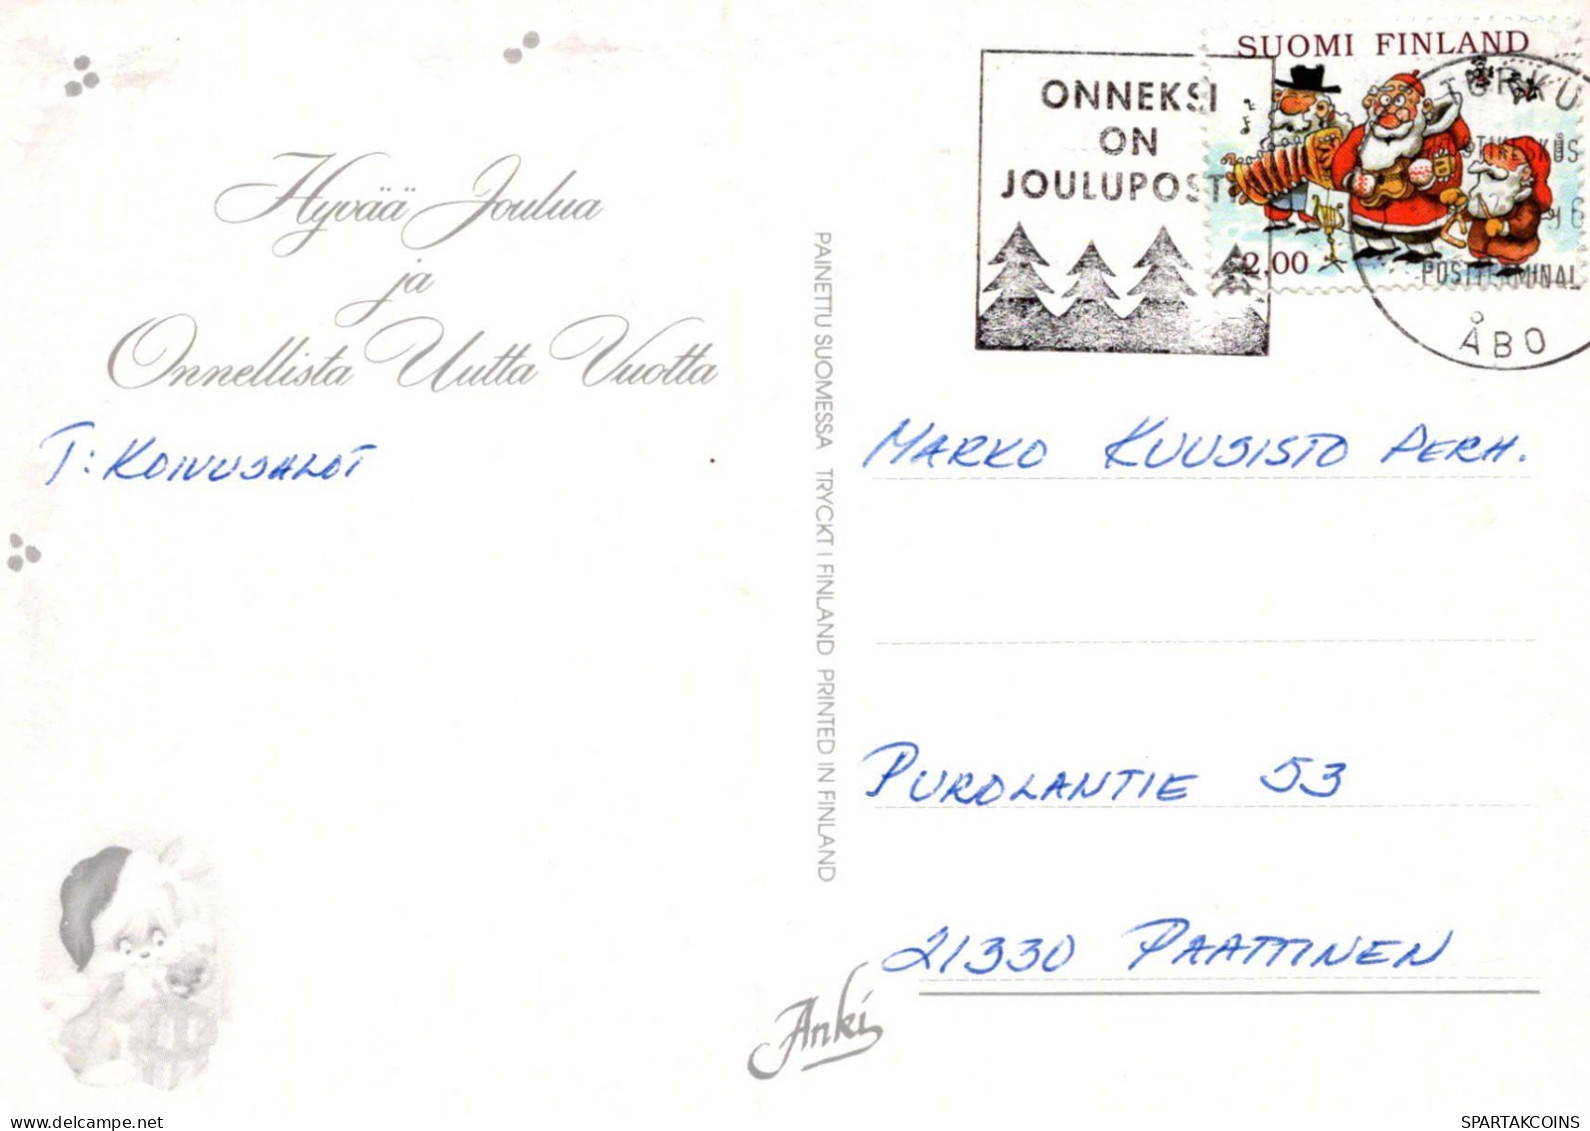 SUOMI FINLAND
ONNEKSI
ON
JOULUPOSTI
2,00
TURKU
POSTIKESKUS
POSTTERMINAL
ÅBO
Hyvää Joulua
ja
Onnellista Uutta Vuotta
T: KOIVUSALOT
PAINETTU SUOMESSA TRYCKT I FINLAND PRINTED IN FINLAND
MARKO KUUSISTO PERH.
PUROLANTIE 53
21330 PAATTINEN
Anki
SPARTAKCOINS